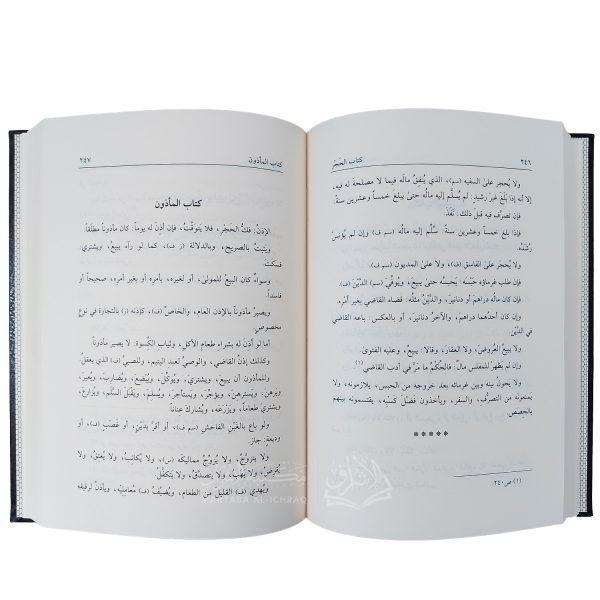 ٢٤٦
كتاب الحَجْر
ولا يُحجر على السفيه (سم)، الذي يُنفِقُ مالَه فيما لا مصلحةَ له فيه،
إلا أنه إذا بَلَغَ غيرَ رشيدٍ: لم يُسلَّم إليه مالُه حتىٰ يبلغَ خمساً وعشرين سنةً.
فإن تصرَّف فيه قبل ذلك: نَفَذَ.
فإذا بلغ خمساً وعشرين سنةً: سُلِّم إليه مالُه (سم ف) وإن لم يُؤنَس
رُشْدُه.
ولا يُحجر على الفاسق (ف)، ولا على المديون (سم ف).
فإن طلب غرماؤه حَبْسَه: يَحبسُه حتىٰ يبيعَ، ويُوفيَ الدَّيْنَ (ف).
فإن كان مالُه دراهمَ أو دنانيرَ، والدَّيْنُ مثلُه: قضاه القاضي بغير أمره.
وإن كان أحدُهما دراهمَ، والآخرُ دنانيرَ، أو بالعكس: باعه القاضي
في الدَّيْن.
ولا يبيعُ العُروضَ، ولا العقارَ، وقالا: يبيعُ، وعليه الفتوىٰ.
وإن لم يَظهر للمفلس مالٌ: فالحُكْمُ ما مَرَّ في أدب القاضي (١)
ولا يحولُ بينه وبين غرمائه بعد خروجه من الحبس، يلازمونه، ولا
يمنعونه من التصرُّف، والسفر، ويأخذون فَضْلَ كَسْبِه، يقتسمونه بينهم
بالحصص.
*****
(١) ص٢٤٠.
كتاب المأذون
٢٤٧
كتاب المأذون
الإذنُ: فكُّ الحَجْر، فلا يتوقَّتُ، فإن أَذِنَ له يوماً: كان مأذوناً مطلقاً.
ويثبتُ بالصريح، وبالدلالة (ز ف)، كما لو رآه يبيعُ، ويشتري،
فسكت.
وسواءٌ كان البيعُ للمولىٰ، أو لغيره، بأمره أو بغير أمره، صحيحاً أو
فاسداً.
ويصيرُ مأذوناً بالإذن العام، والخاصِّ (ف)، كإذنه (ز) بالتجارة في نوعٍ
مخصوصٍ.
أما لو أَذِنَ له بشراء طعامِ الأكل، وثيابِ الكُسوة: لا يصير مأذوناً.
وكذلك إذنُ القاضي، والوصيِّ لعبد اليتيم، وللصبيِّ (ف) الذي يعقلُ.
وللمأذون أن يبيعَ، ويشتري، ويُوكِّلَ، ويُبضِعَ، ويُضاربَ، ويُعيرَ،
ويرهنَ، ويسترهنَ، ويؤجِّرَ، ويستأجرَ، ويُسلِمَ، ويقبلَ السَّلَمَ، ويُزارعَ،
ويشتريَ طعاماً، ويَزرعَه، ويُشاركَ عناناً.
ولو باع بالغَبْن الفاحش (سم ف)، أو أقرَّ بدَيْنٍ، أو غَصْبٍ (ف)، أو
وديعةٍ: جاز.
ولا يتزوَّجُ، ولا يُزوِّجُ مماليكَه (س ف)، ولا يُكاتِبُ، ولا يُعتِقُ، ولا
يُقرِضُ، ولا يَهَبُ، ولا يتصدَّقُ، ولا يتكفَّلُ.
ويُهدي (ف) القليلَ من الطعام، ويُضيِّفُ (ف) مُعامِليه، ويأذنُ لرقيقه
مكتبة الإشراق
MAKTABA AL-ICHRAQ